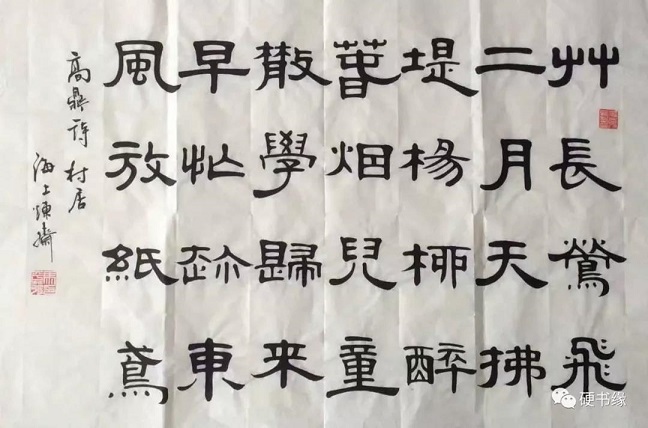 艸長鶯飛
二月天拂
堤楊桺醉
萅烟兒童
散學歸来
早忙趂東
風放紙鳶
高鼎詩 村居
海上
硬书缘